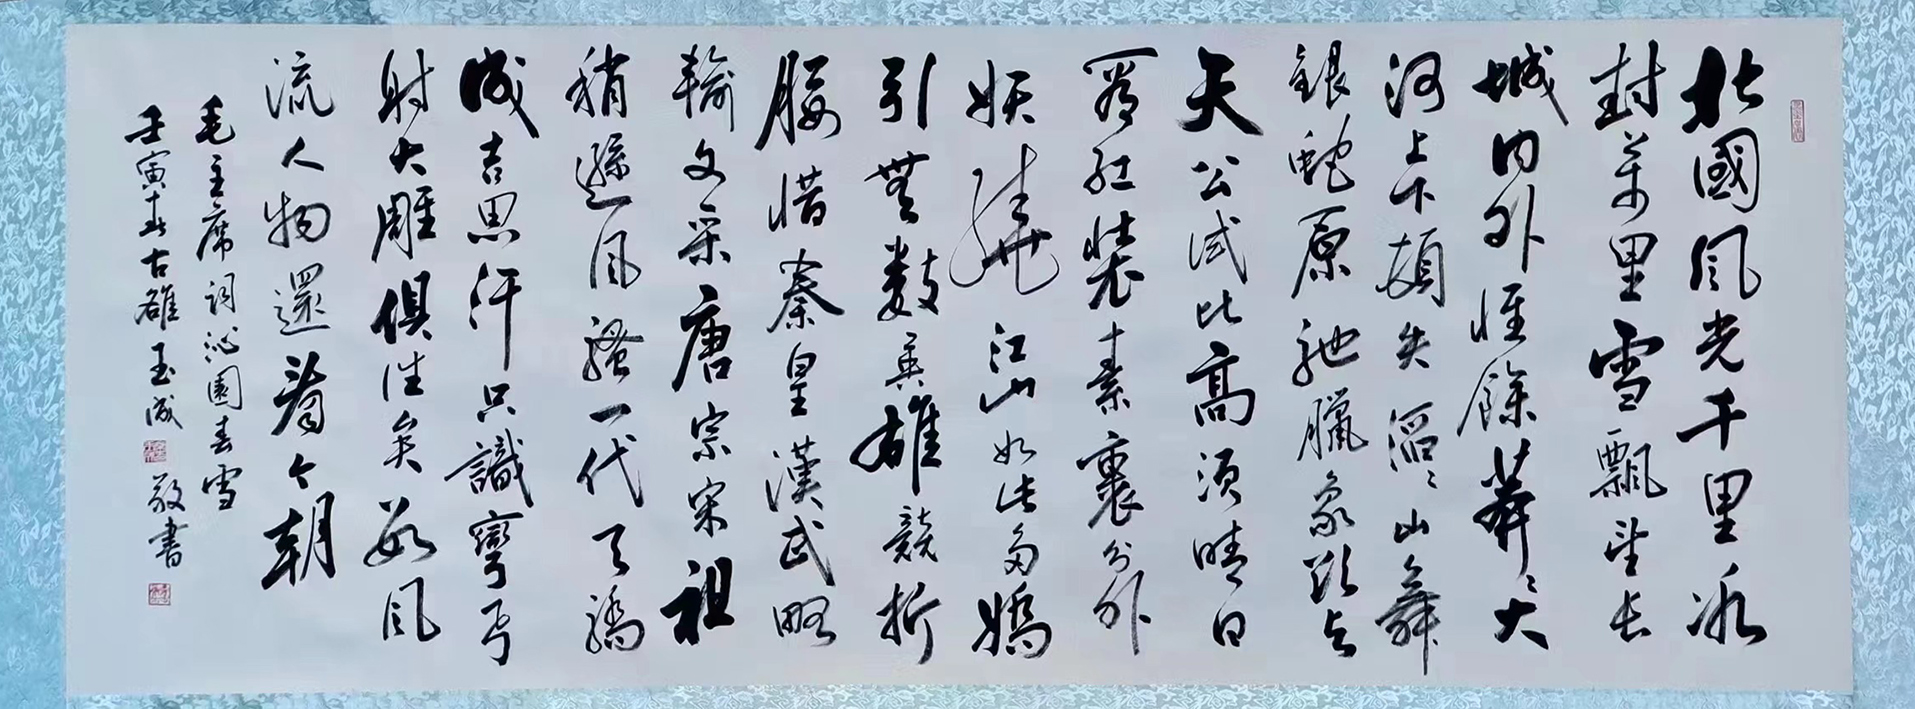 北國風光千里冰
封萬里雪飄望長
城内外惟餘莽〻大
河上下頓失滔〻山舞
銀蛇原馳臘象欲与
天公試比高須晴日
看紅裝素裹分外
妖嬈江山如此多嬌
引無數英雄競折
腰惜秦皇漢武略
輸文采唐宗宋祖
稍遜風騷一代天驕
成吉思汗只識彎弓
射大雕俱往矣數風
流人物還看今朝
毛主席詞沁園春雪
壬寅春古雒玉成敬書